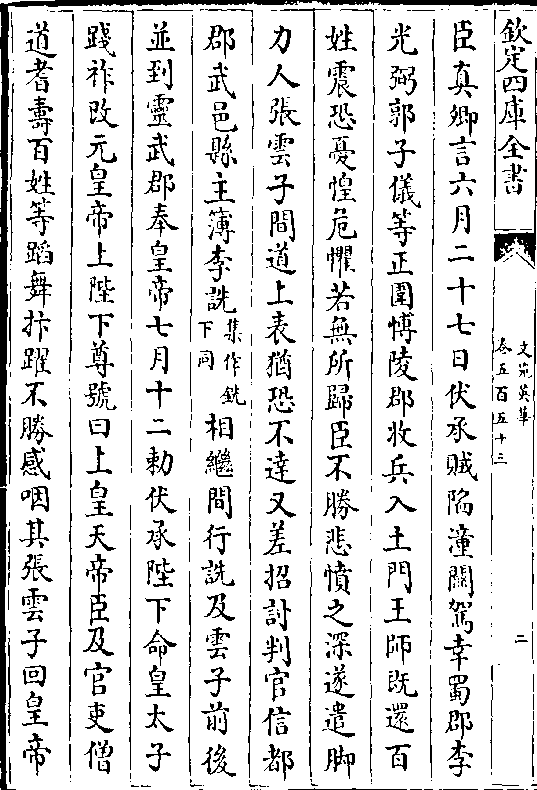 欽定四庫全書
文苑英華
卷五百五十三
二
臣真卿言六月二十七日伏承賊陷潼關駕幸蜀郡李
光弼郭子儀等正圍博陵郡收兵入土門王師既還百
姓震恐憂惶危懼若無所歸臣不勝悲憤之深遂遣脚
力人張雲子間道上表猶恐不達又差招討判官信都
郡武邑縣主簿李詵集作銑下同相繼間行詵及雲子前後
並到靈武郡奉皇帝七月十二勅伏承陛下命皇太子
踐祚改元皇帝上陛下尊號曰上皇天帝臣及官吏僧
道耆壽百姓等蹈舞抃躍不勝感咽其張雲子回皇帝